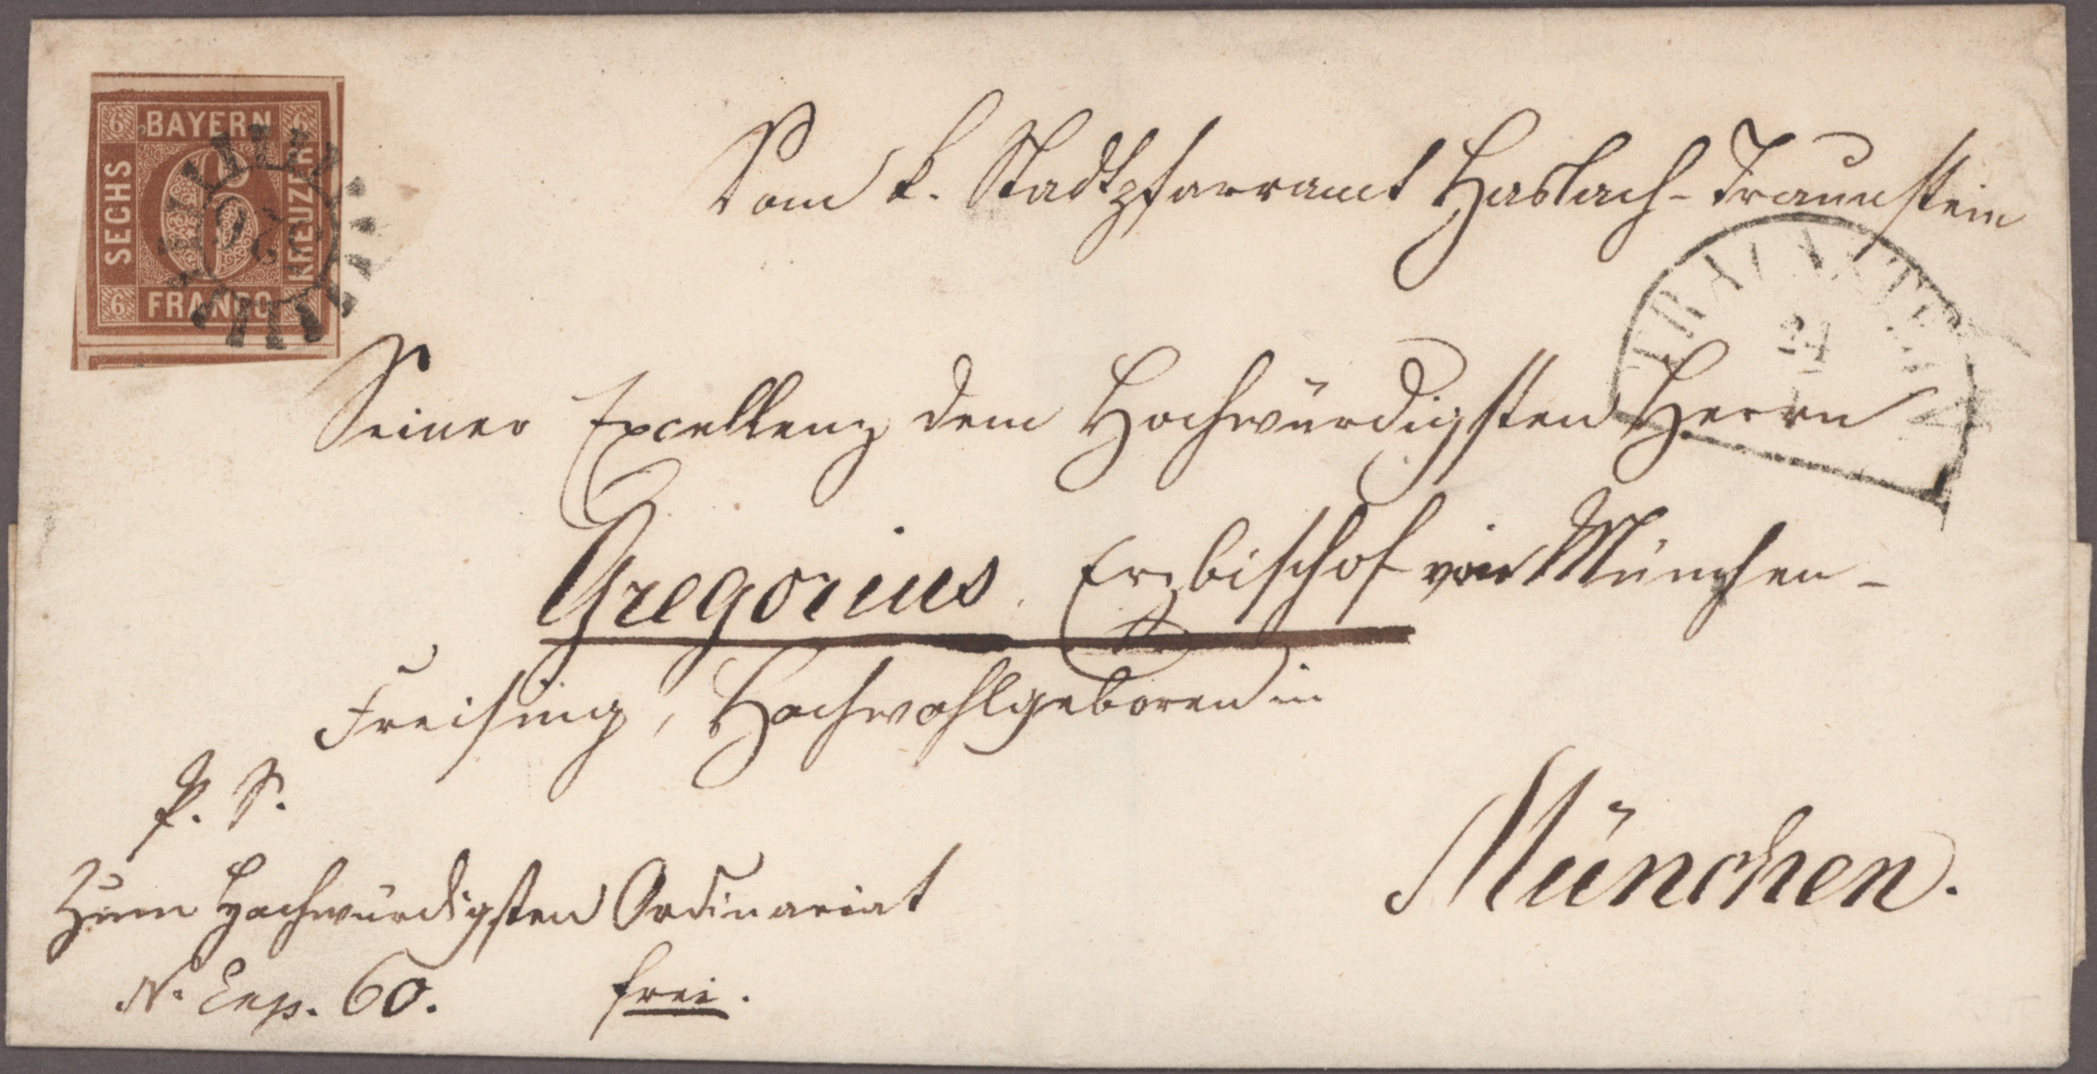 6 BAYERN 6
SECHS
6
KREUZER
6 FRANCO
Vom k. Stadtpfarramt Haslach-Traunstein
TRAUNSTEIN
Seiner Excellenz dem Hochwürdigsten Herrn
Gregorius Erzbischof von München-
Freising, Hochwohlgeboren in
P. S.
München.
Zum Hochwürdigsten Ordinariat
No Exp. 60. frei.